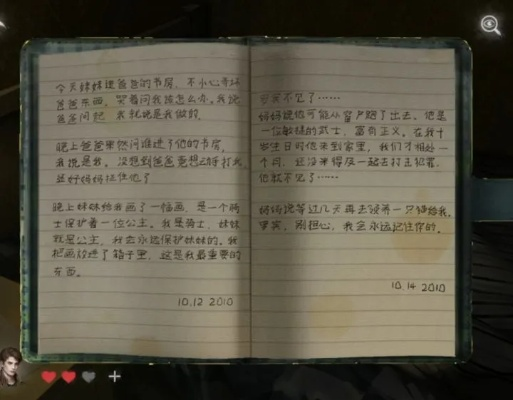 今天妹妹进爸爸的书房，不小心弄坏
爸爸东西，哭着问我该怎么办。我说
爸爸问起，我就说是我做的。
晚上爸爸果然问谁进了他的书房，
我说是我。没想到爸爸竟想动手打我，
还好妈妈拦住他了
晚上妹妹给我画了一幅画，是一个骑
士保护着一位公主。我是骑士，妹妹
就是公主，我会永远保护妹妹的。我
把画放进了箱子里，这是我最重要的
东西。
10.12 2010
不见了……
妈妈说他可能从窗户跑了出去。他是
一位敏捷的武士，富有正义。在我十
岁生日时他来到家里，我们才相处一
个月，还没来得及一起去打击犯罪，
他就不见了……
妈妈说等过几天再去领养一只猫给我。
别担心，我会永远记住你的。
10.14 2010